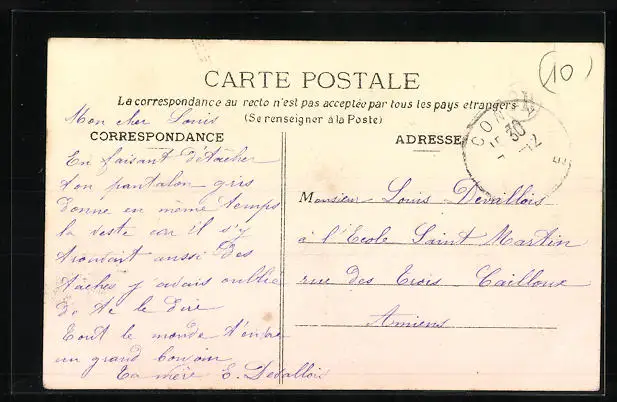 (10)
CARTE POSTALE
La correspondance au recto n'est pas acceptée par tous les pays étrangers
(Se renseigner à la Poste)
Mon cher Louis
CORRESPONDANCE
En faisant détacher
ton pantalon gris
donne en même temps
la veste car il s'y
trouvait aussi des
taches j'avais oublié
de te le dire
Tout le monde t'envoie
un grand bonjour
Ta mère E. Devallois
ADRESSE
CON
30
12
Monsieur Louis Devallois
à l'Ecole Saint Martin
rue des Trois Cailloux
Amiens